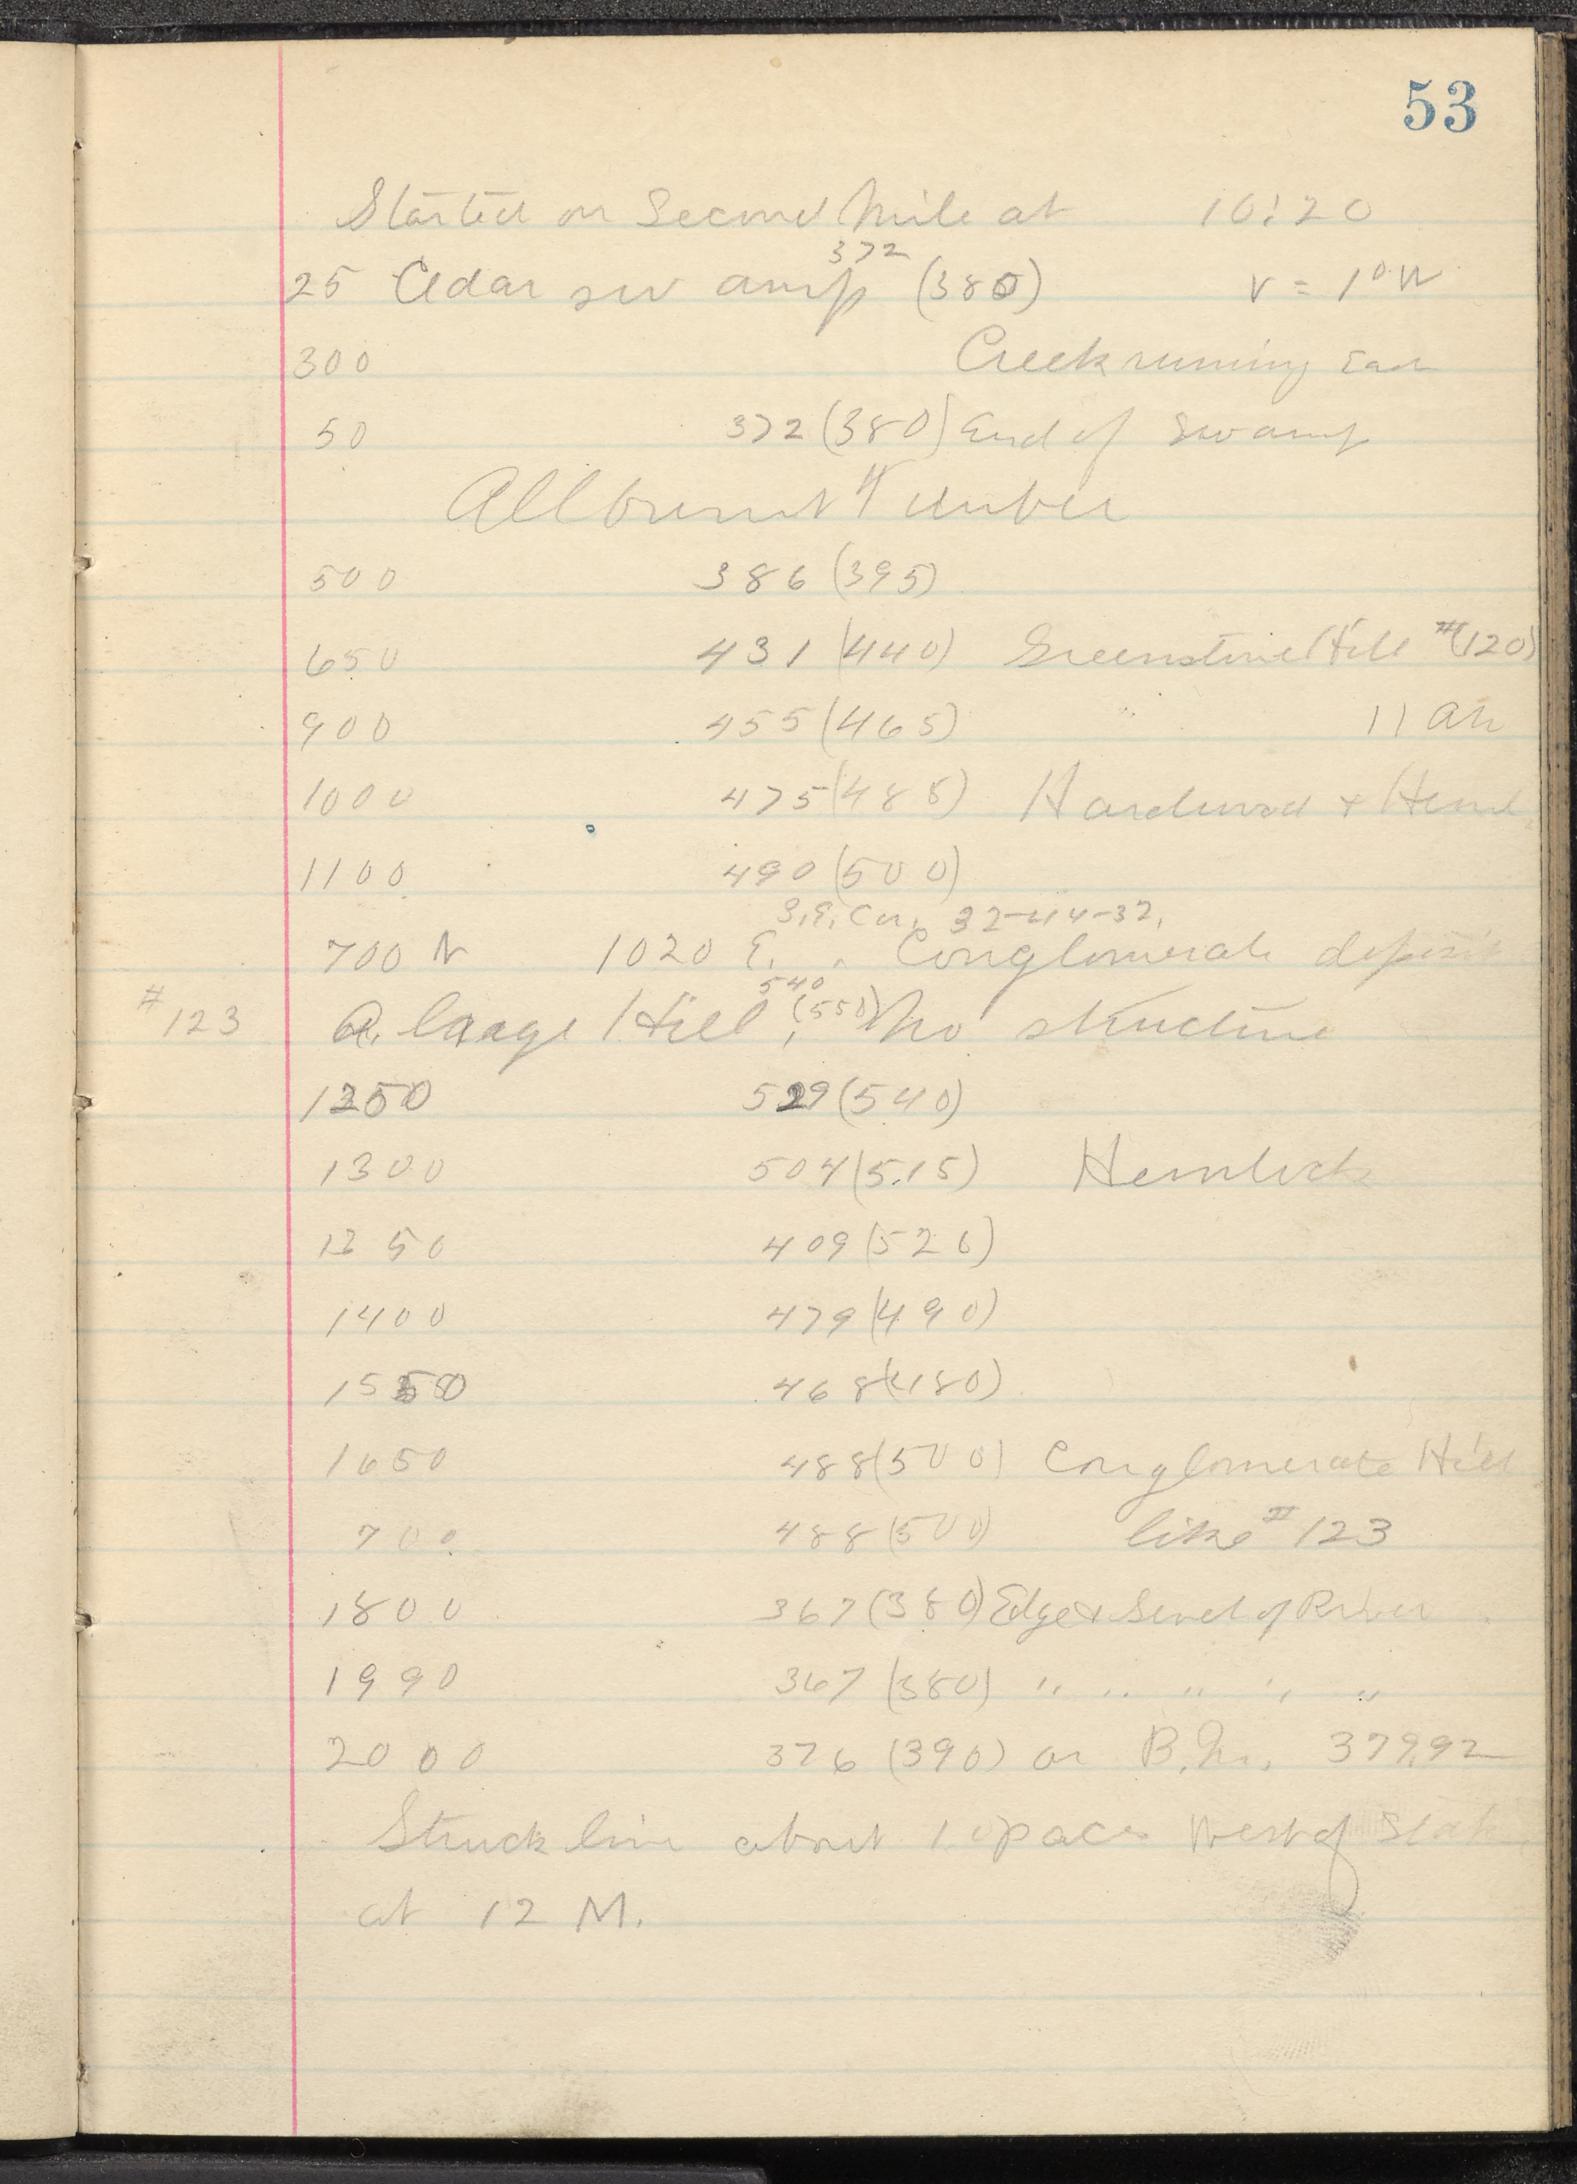 53
Started on Second Mile at 10:20
372
25 Cedar swamp (380) V = 1° W
300 Creek running East
50 372 (380) End of Swamp
All burnt Timber
500 386 (395)
650 431 (440) Greenstone Hill #(120)
900 455 (465) " 11
1000 475 (485) Hardwood + Heml.
1100 490 (500)
S.E. Cor. 32-44-32,
700 N 1020 E. Conglomerate deposit
540
#123 A. large Hill, (550) No structure
1250 529 (540)
1300 504 (515) Hemlock
1350 409 (520)
1400 479 (490)
1550 468 (480)
1650 488 (500) Conglomerate Hill
700 488 (500) like #123
1800 367 (380) Edge & Level of River
1990 367 (380) " " " " "
2000 376 (390) or B.M. 379.92
Struck line about paces West of Stake
at 12 M.